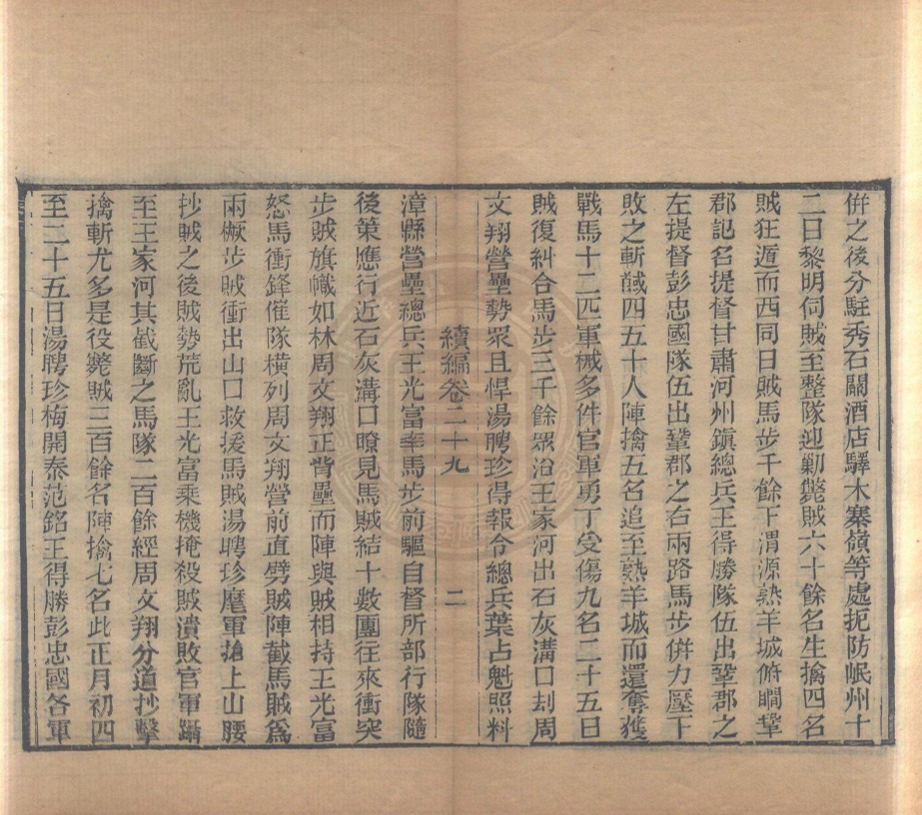 倂之後分駐秀石關酒店驛木寨嶺等處扼防岷州十
二日黎明伺賊至整隊迎勦斃賊六十餘名生擒四名
賊狂遁而西同日賊馬步千餘下渭源熟羊城俯瞯鞏
郡記名提督甘肅河州鎭總兵王得勝隊伍出鞏郡之
左提督彭忠國隊伍出鞏郡之右兩路馬步併力壓下
敗之斬馘四五十人陣擒五名追至熟羊城而還奪獲
戰馬十二匹軍械多件官軍勇丁受傷九名二十五日
賊復糾合馬步三千餘眾沿王家河出石灰溝口刦周
文翔營壘勢眾且悍湯聘珍得報令總兵葉占魁照料
續編卷二十九
二
漳縣營壘總兵王光富率馬步前驅自督所部行隊隨
後策應行近石灰溝口瞭見馬賊結十數團往來衝突
步賊旗幟如林周文翔正背壘而陣與賊相持王光富
怒馬衝鋒催隊橫列周文翔營前直劈賊陣截馬賊爲
兩橛步賊衝出山口救援馬賊湯聘珍麾軍搶上山腰
抄賊之後賊勢荒亂王光富乘機掩殺賊潰敗官軍躡
至王家河其截斷之馬隊二百餘經周文翔分道抄擊
擒斬尤多是役斃賊三百餘名陣擒七名此正月初四
至二十五日湯聘珍梅開泰范銘王得勝彭忠國各軍